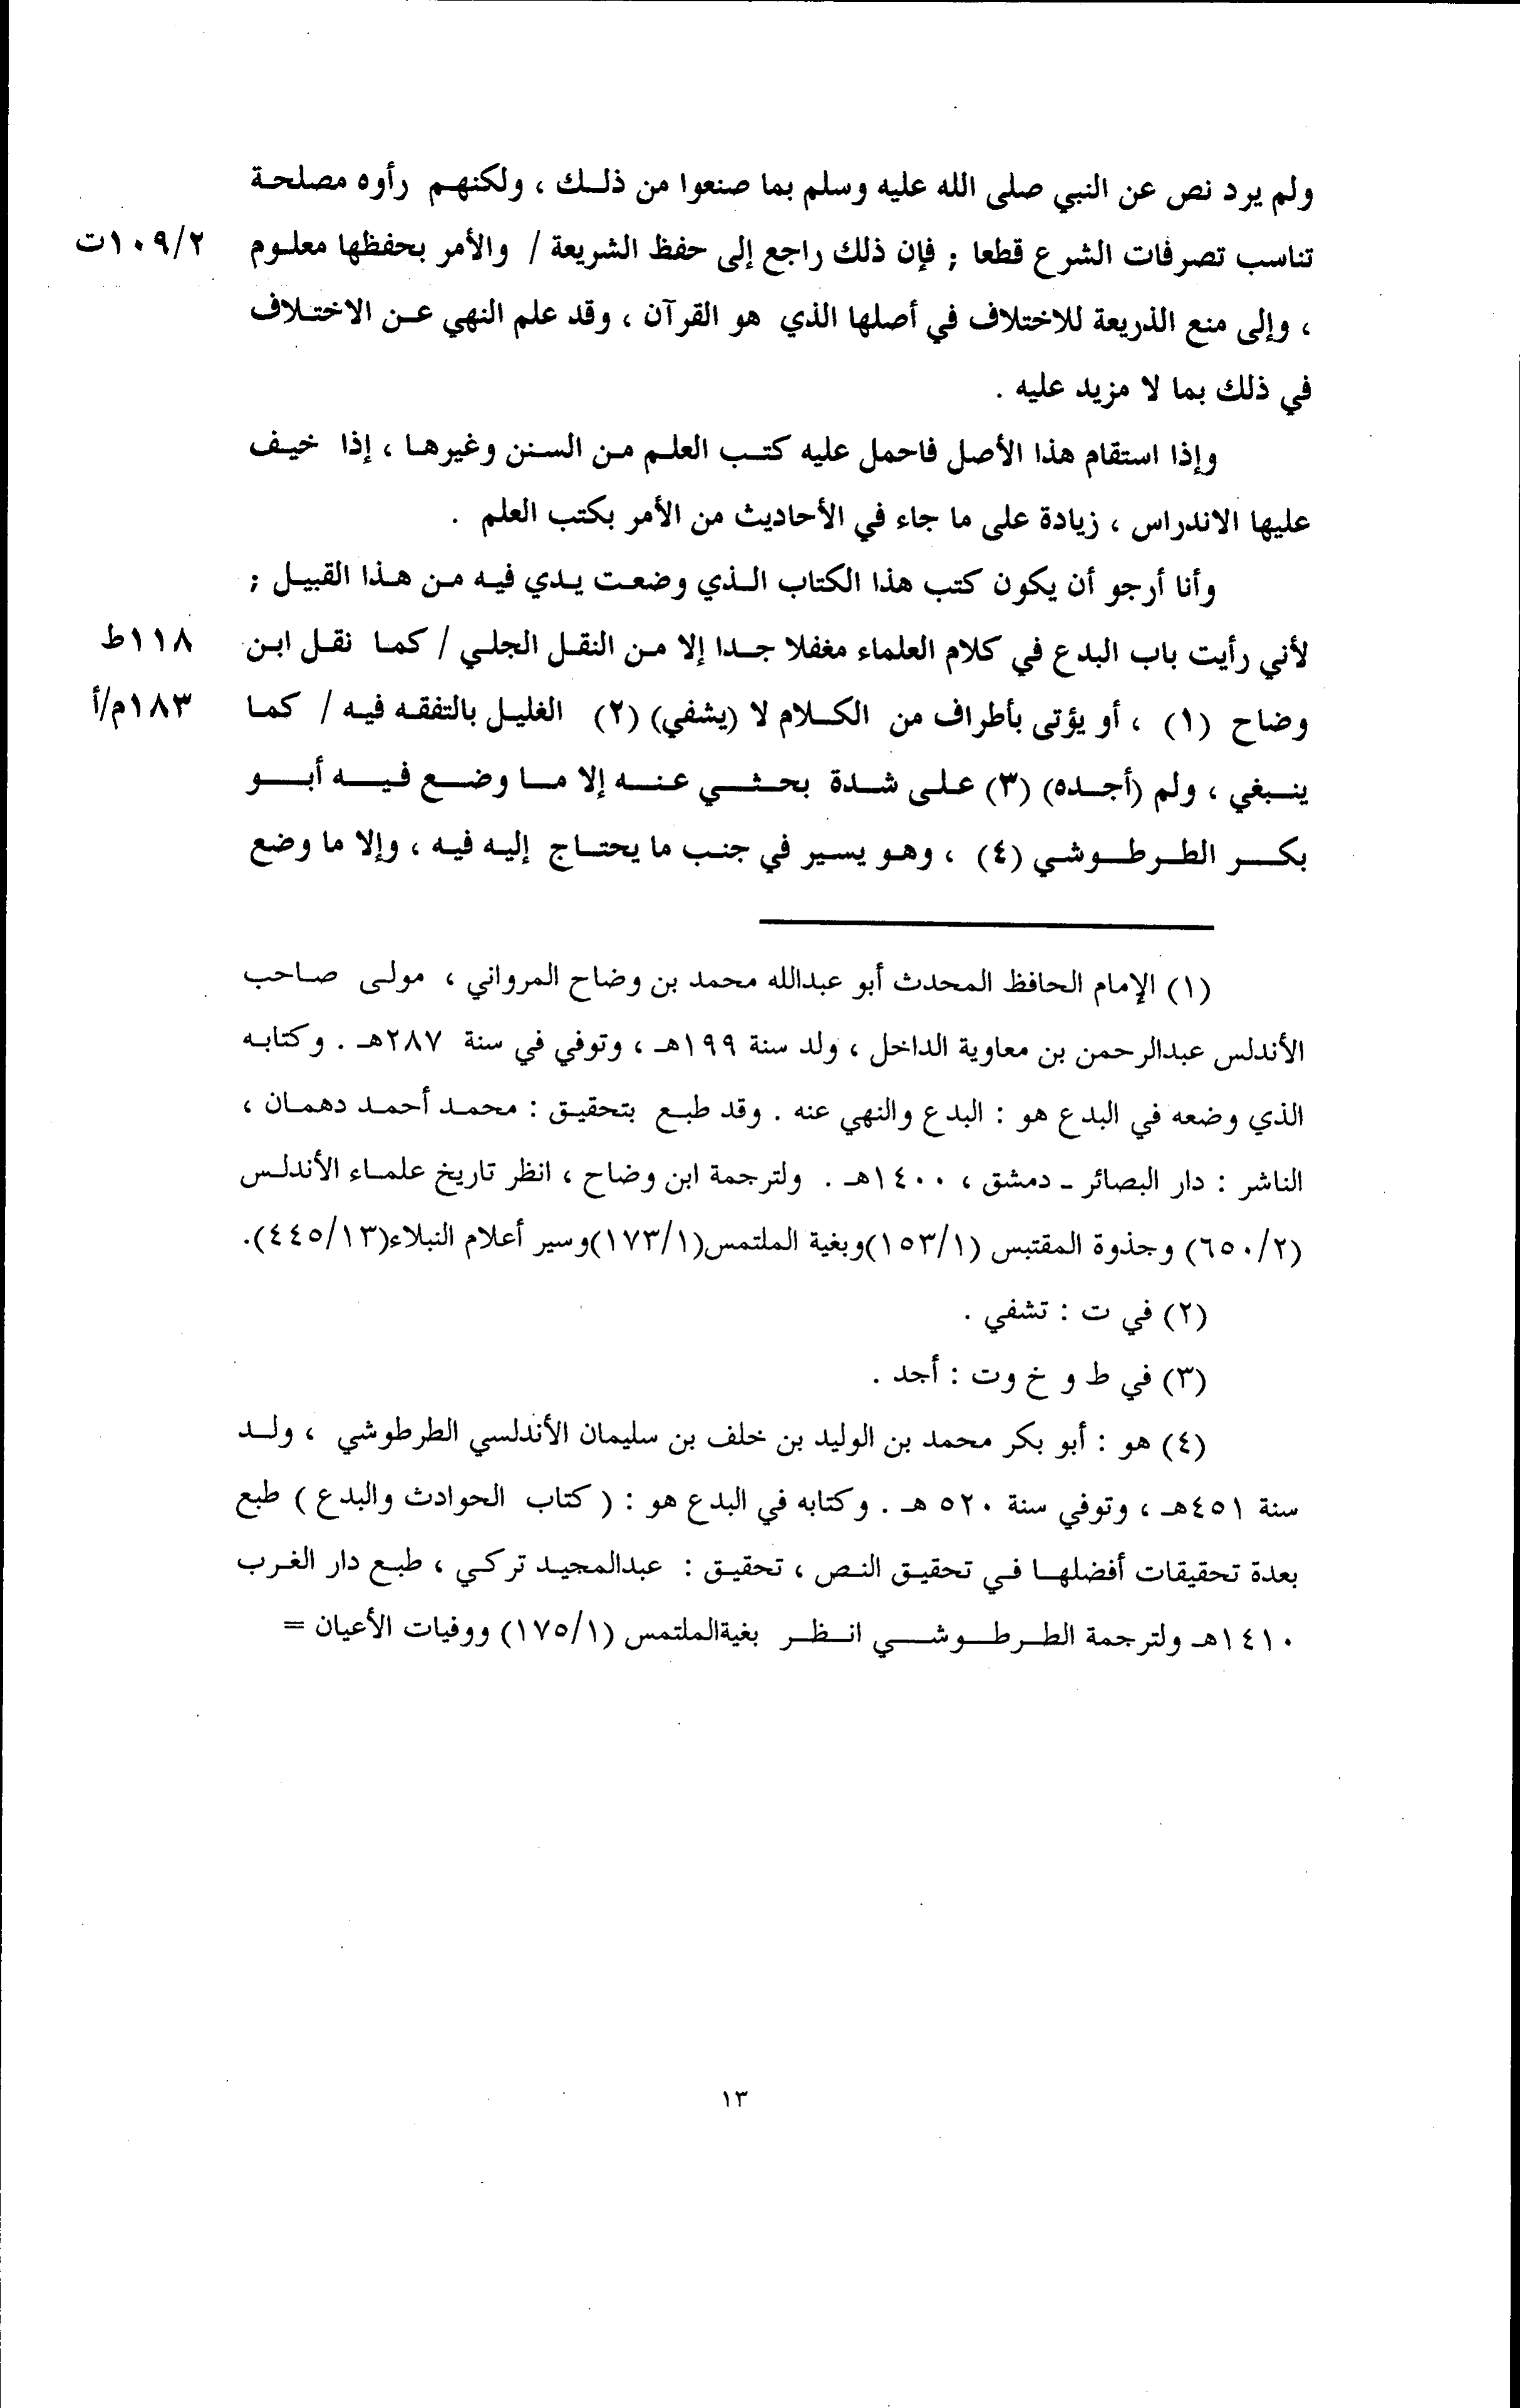 ولم يرد نص عن النبي صلى الله عليه وسلم بما صنعوا من ذلك ، ولكنهم رأوه مصلحة
تناسب تصرفات الشرع قطعا ; فإن ذلك راجع إلى حفظ الشريعة / والأمر بحفظها معلوم ١٠٩/٢ت
، وإلى منع الذريعة للاختلاف في أصلها الذي هو القرآن ، وقد علم النهي عن الاختلاف
في ذلك بما لا مزيد عليه .
وإذا استقام هذا الأصل فاحمل عليه كتب العلم من السنن وغيرها ، إذا خيف
عليها الاندراس ، زيادة على ما جاء في الأحاديث من الأمر بكتب العلم .
وأنا أرجو أن يكون كتب هذا الكتاب الذي وضعت يدي فيه من هذا القبيل ;
لأني رأيت باب البدع في كلام العلماء مغفلا جدا إلا من النقل الجلي / كما نقل ابن ١١٨ط
وضاح (١) ، أو يؤتى بأطراف من الكلام لا (يشفي) (٢) الغليل بالتفقه فيه / كما ١٨٣م/أ
ينبغي ، ولم (أجده) (٣) على شدة بحثي عنه إلا ما وضع فيه أبو
بكر الطرطوشي (٤) ، وهو يسير في جنب ما يحتاج إليه فيه ، وإلا ما وضع
(١) الإمام الحافظ المحدث أبو عبدالله محمد بن وضاح المرواني ، مولى صاحب
الأندلس عبدالرحمن بن معاوية الداخل ، ولد سنة ١٩٩هـ ، وتوفي في سنة ٢٨٧هـ . وكتابه
الذي وضعه في البدع هو : البدع والنهي عنه . وقد طبع بتحقيق : محمد أحمد دهمان ،
الناشر : دار البصائر ـ دمشق ، ١٤٠٠هـ . ولترجمة ابن وضاح ، انظر تاريخ علماء الأندلس
(٦٥٠/٢) وجذوة المقتبس (١٥٣/١)وبغية الملتمس(١٧٣/١)وسير أعلام النبلاء(٤٤٥/١٣).
(٢) في ت : تشفي .
(٣) في ط و خ وت : أجد .
(٤) هو : أبو بكر محمد بن الوليد بن خلف بن سليمان الأندلسي الطرطوشي ، ولد
سنة ٤٥١هـ ، وتوفي سنة ٥٢٠ هـ . وكتابه في البدع هو : ( كتاب الحوادث والبدع ) طبع
بعدة تحقيقات أفضلها في تحقيق النص ، تحقيق : عبدالمجيد تركي ، طبع دار الغرب
١٤١٠هـ ولترجمة الطرطوشي انظر بغيةالملتمس (١٧٥/١) ووفيات الأعيان =
١٣